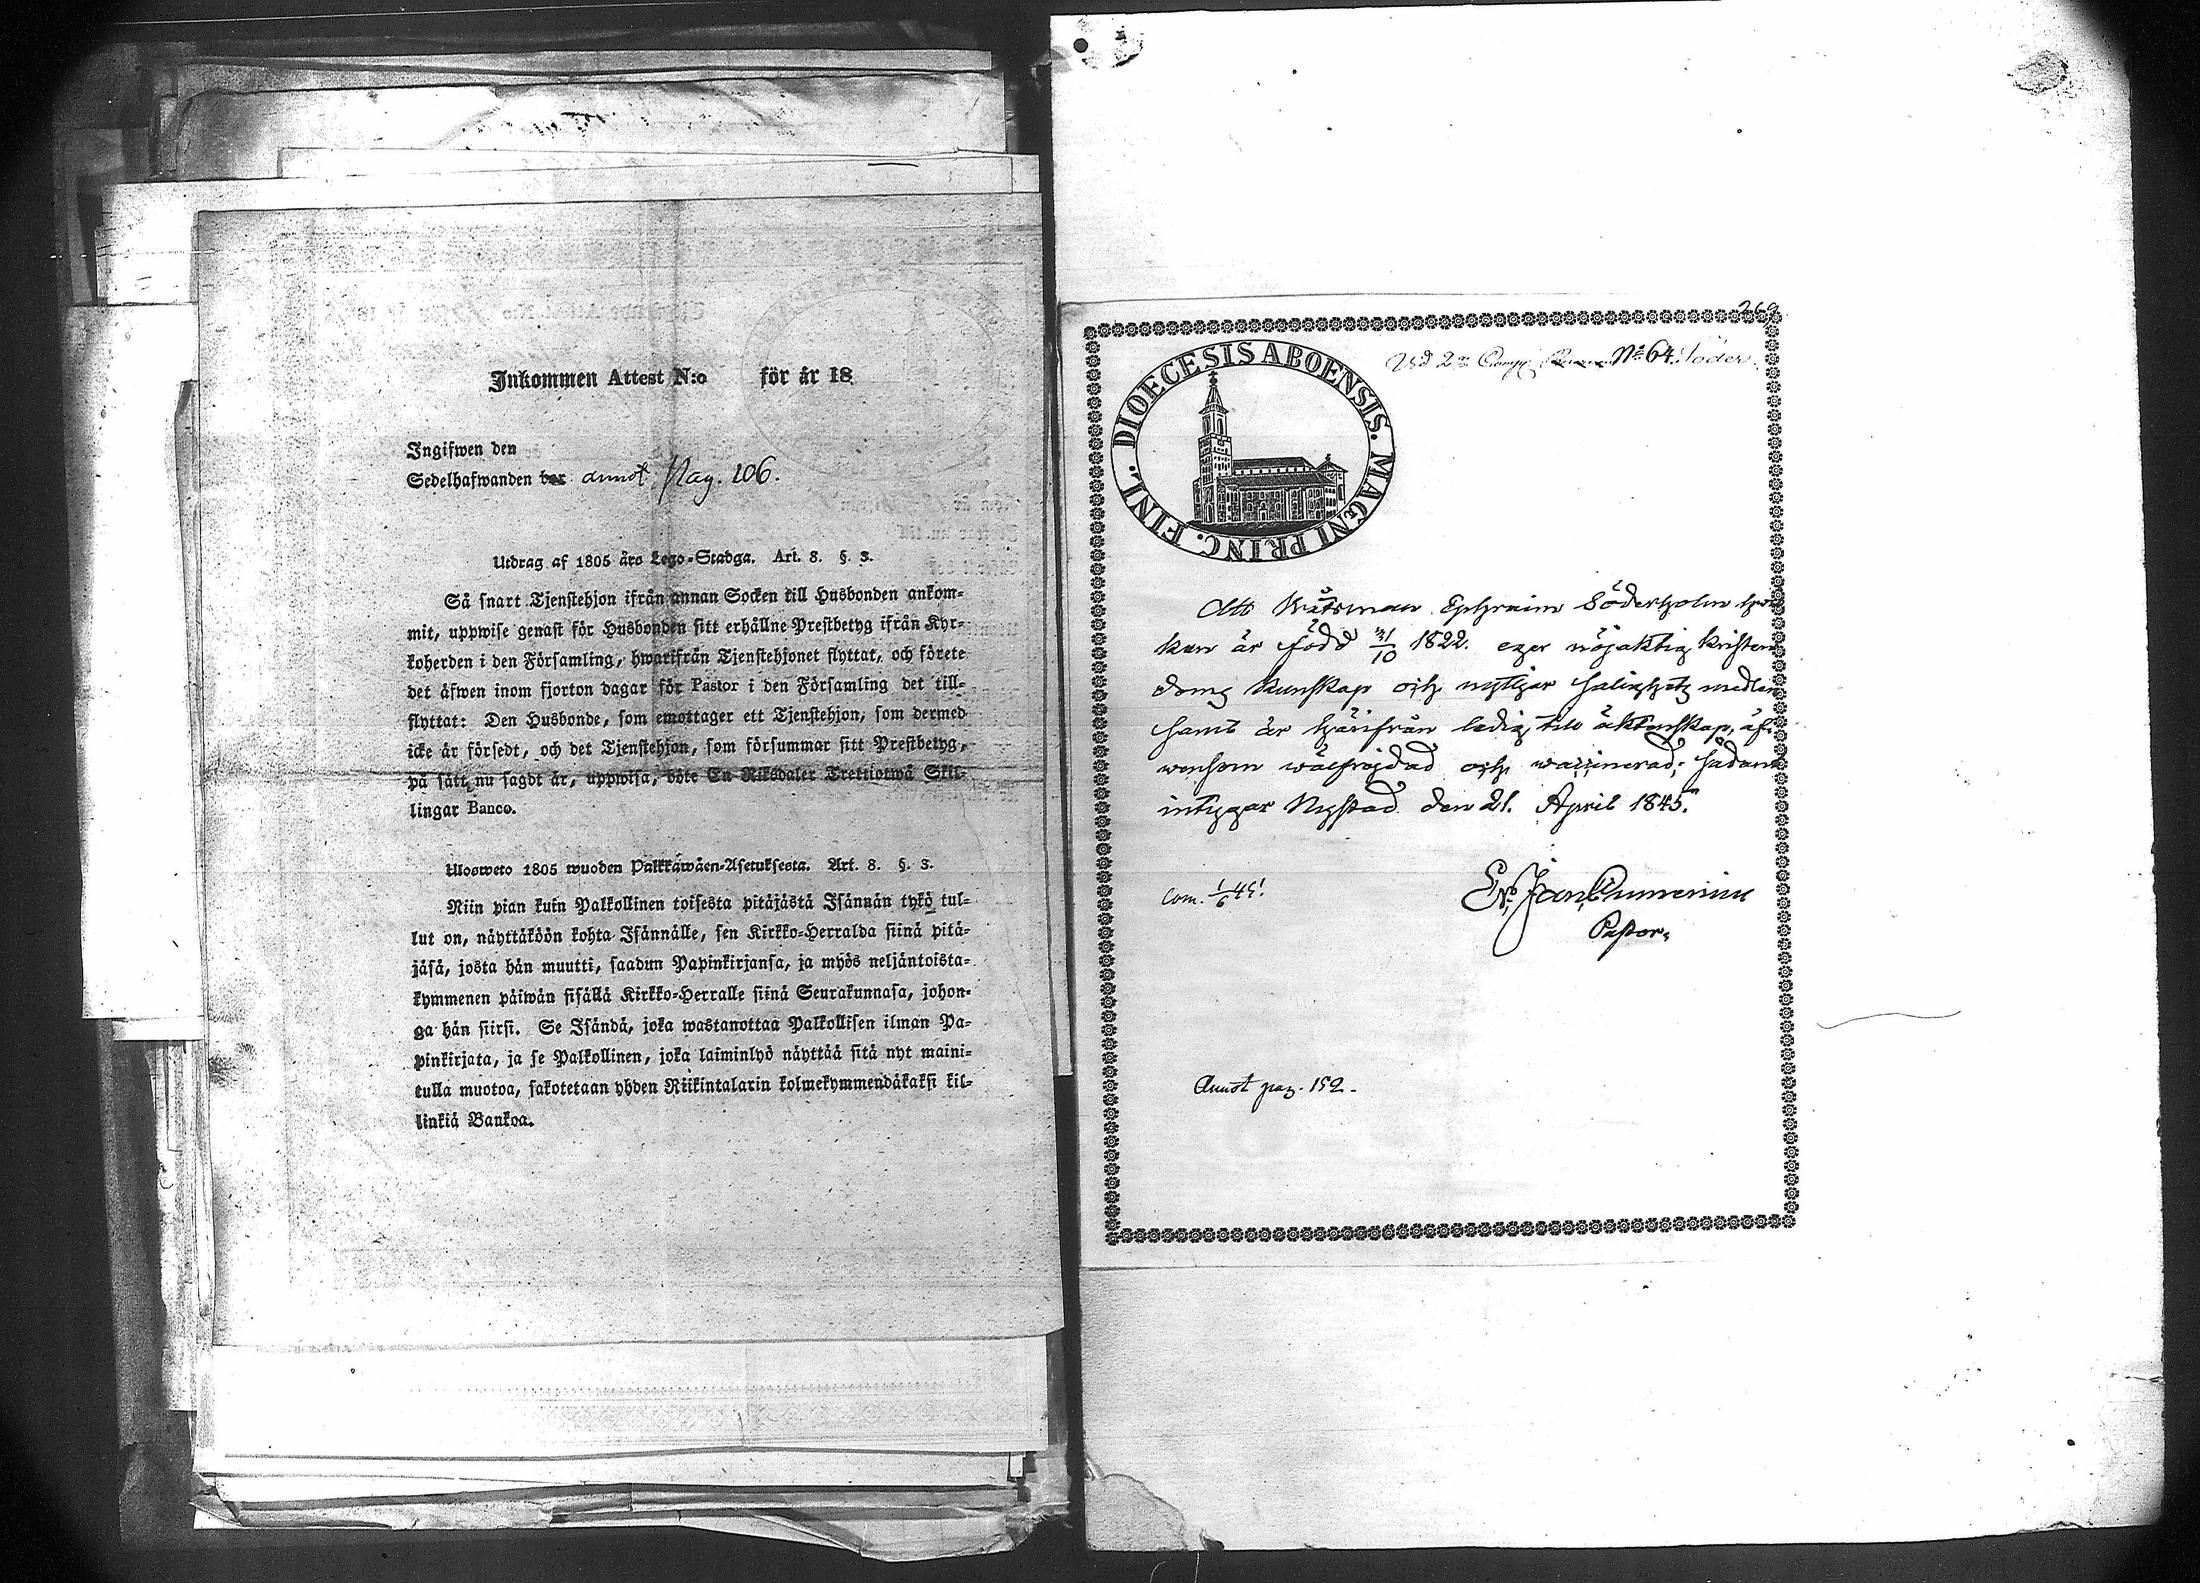 Inkommen Attest N:o för år 18
Ingifwen den
Sedelhafwanden bor annot Pag. 106.
Utdrag af 1805 års Lego-Stadga. Art. 8. §. 3.
Så snart Tjenstehjon ifrån annan Socken till Husbonden ankom-
mit, uppwise genast för Husbonden sitt erhållne Prestbetyg ifrån Kyr-
koherden i den Församling, hwarifrån Tjenstehjonet flyttat, och förete
det äfwen inom fjorton dagar för Pastor i den Församling det till-
flyttat: Den Husbonde, som emottager ett Tjenstehjon, som dermed
icke är försedt, och det Tjenstehjon, som försummar sitt Prestbetyg,
på sätt nu sagdt är, uppwisa, böte En Riksdaler Trettiotwå Skil-
lingar Banco.
Ulosweto 1805 wuoden Palkkawäen-Asetuksesta. Art. 8. §. 3.
Niin pian kuin Palkollinen toisesta pitäjästä Isännän tykö tul-
lut on, näyttäköön kohta Isännälle, sen Kirkko-Herralda siinä pitä-
jäsä, josta hän muutti, saadun Papinkirjansa, ja myös neljäntoista-
kymmenen päiwän sisällä Kirkko-Herralle siinä Seurakunnasa, johon-
ga hän siirsi. Se Isändä, joka wastanottaa Palkollisen ilman Pa-
pinkirjata, ja se Palkollinen, joka laiminlyö näyttää sitä nyt maini-
tulla muotoa, sakotetaan yhden Riikintalarin kolmekymmendäkaksi kil-
linkiä Bankoa.
269
Vid 2:a Comp. No 64. Söder
DIOECESIS ABOENSIS. MAGNI PRINC. FINL.
Att Ephraim Söderholm
kan är född 31/10 1822. eger nöjaktig kristen
doms kunskap och nyttjar salighets medlen
samt är härifrån ledig till äktenskap, äf-
wensom wälfrejdad och waccinerad; sådant
intygar Nystad den 21. April 1845.
Com. 1/6 45!
Pastor.
Annot pag. 152.